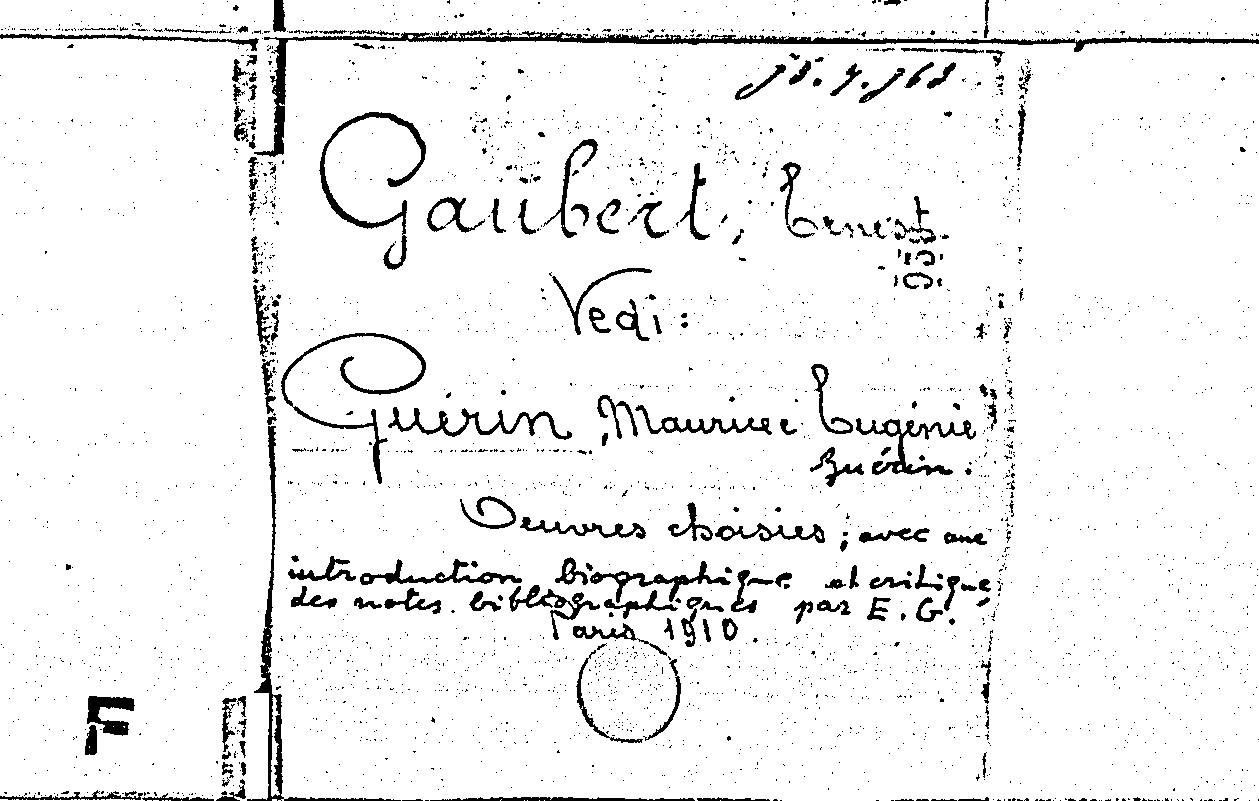 18.4.J68
Gaubert, Ernest.
Vedi:
Guérin, Maurice e Eugénie
Guérin.
Oeuvres choisies; avec une
introduction biographique et critique,
des notes bibliographiques par E. G.
Paris 1910.
F